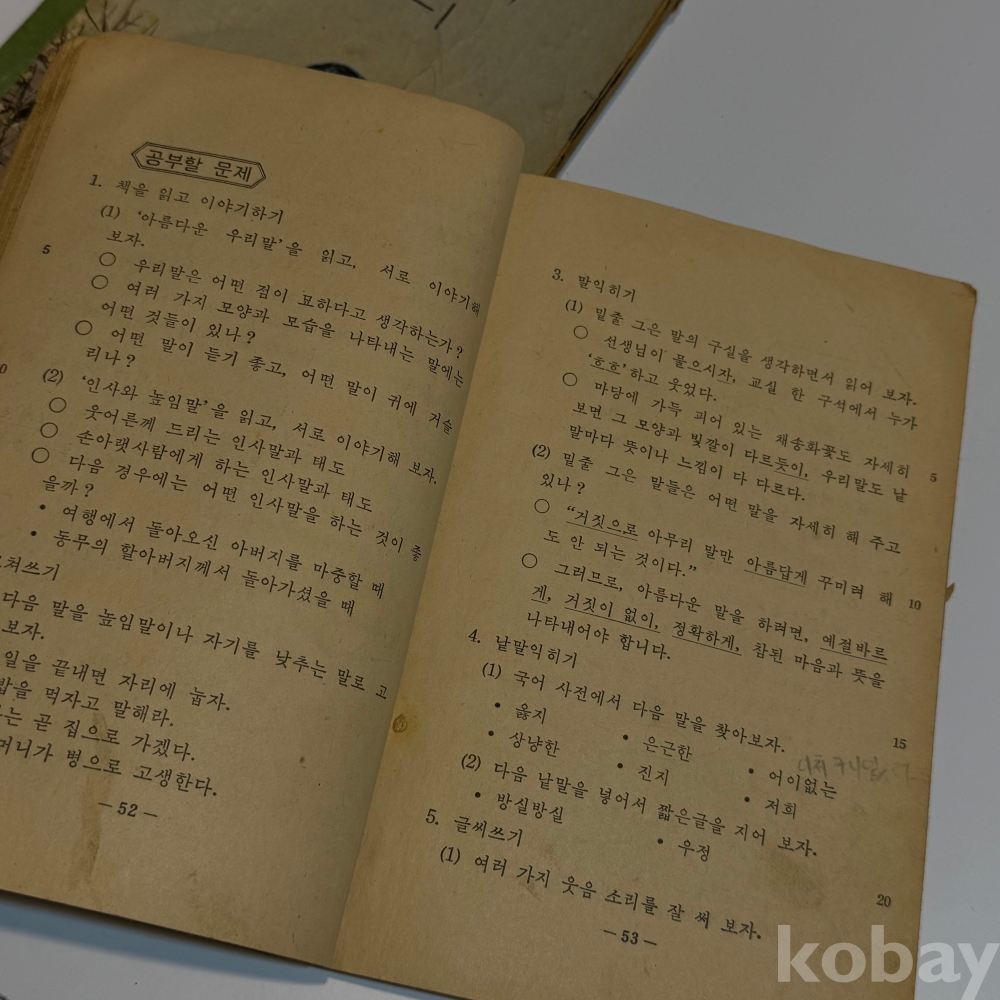 공부할 문제
1. 책을 읽고 이야기하기
(1) ‘아름다운 우리말’을 읽고, 서로 이야기해
보자.
5
○ 우리말은 어떤 점이 묘하다고 생각하는가?
○ 여러 가지 모양과 모습을 나타내는 말에는
어떤 것들이 있나?
○ 어떤 말이 듣기 좋고, 어떤 말이 귀에 거슬
리나?
(2) ‘인사와 높임말’을 읽고, 서로 이야기해 보자.
○ 웃어른께 드리는 인사말과 태도
○ 손아랫사람에게 하는 인사말과 태도
○ 다음 경우에는 어떤 인사말을 하는 것이 좋
을까?
• 여행에서 돌아오신 아버지를 마중할 때
• 동무의 할아버지께서 돌아가셨을 때
쳐쓰기
다음 말을 높임말이나 자기를 낮추는 말로 고
보자.
일을 끝내면 자리에 눕자.
밥을 먹자고 말해라.
는 곧 집으로 가겠다.
머니가 병으로 고생한다.
— 52 —
3. 말익히기
(1) 밑줄 그은 말의 구실을 생각하면서 읽어 보자.
○ 선생님이 물으시자, 교실 한 구석에서 누가
‘흐흐’하고 웃었다.
○ 마당에 가득 피어 있는 채송화꽃도 자세히
보면 그 모양과 빛깔이 다르듯이, 우리말도 낱
말마다 뜻이나 느낌이 다 다르다.
5
(2) 밑줄 그은 말들은 어떤 말을 자세히 해 주고
있나?
○ “거짓으로 아무리 말만 아름답게 꾸미려 해
도 안 되는 것이다.”
10
○ 그러므로, 아름다운 말을 하려면, 예절바르
게, 거짓이 없이, 정확하게, 참된 마음과 뜻을
나타내어야 합니다.
4. 낱말익히기
(1) 국어 사전에서 다음 말을 찾아보자.
15
• 옳지 • 은근한 • 어이없는
• 상냥한 • 진지 • 저희
(2) 다음 낱말을 넣어서 짧은글을 지어 보자.
• 방실방실 • 우정
5. 글씨쓰기
20
(1) 여러 가지 웃음 소리를 잘 써 보자.
— 53 —
kobay